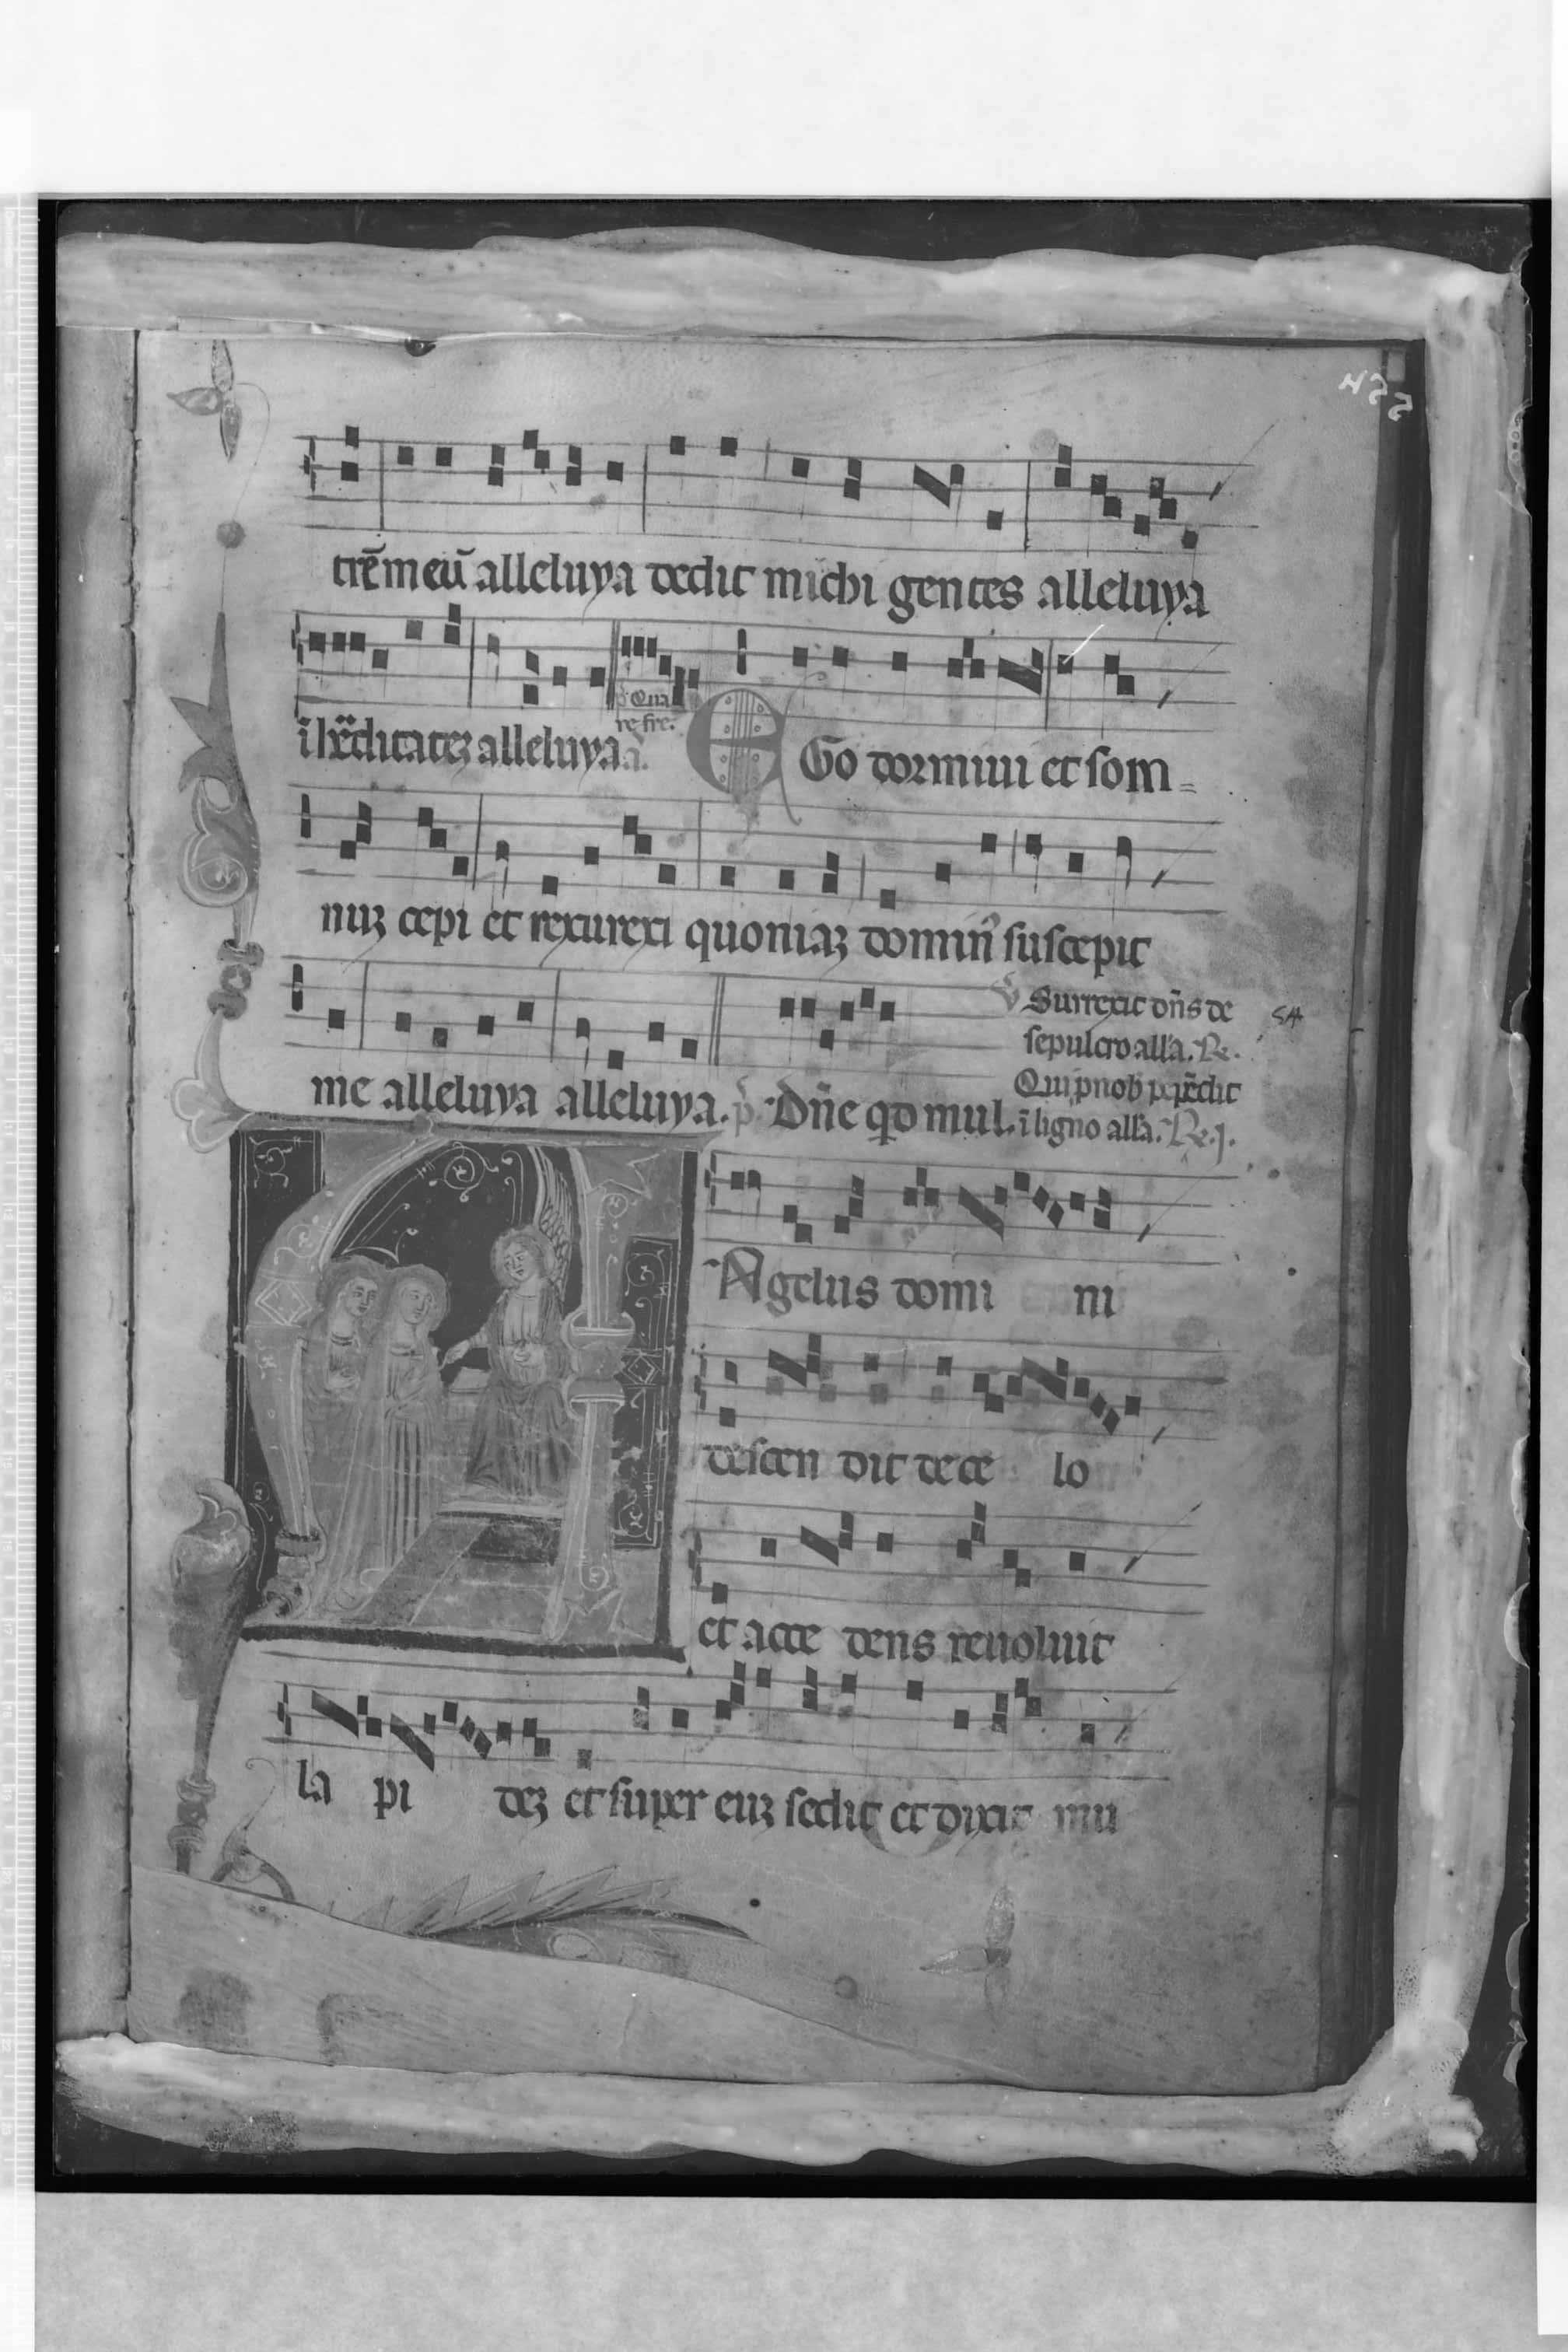 trē meū alleluya dedit michi gentes alleluya
ī h̄editatez alleluya
Qua
re fre.
EGo dormiui et som=
nuz cepi et rexurexi quoniaz domin᾽ suscepit
me alleluya alleluya. p̄. Dn̄e qd mul.
℣ Surrexit dn̄s de
sepulcro all̄a. Re.
Qui p nob pēpēdit
ī ligno all̄a. Re. j.
Agelus domi ni
descen dit de ce lo
et acce dens reuoluit
la pi dez et super euz sedit et dixit mu